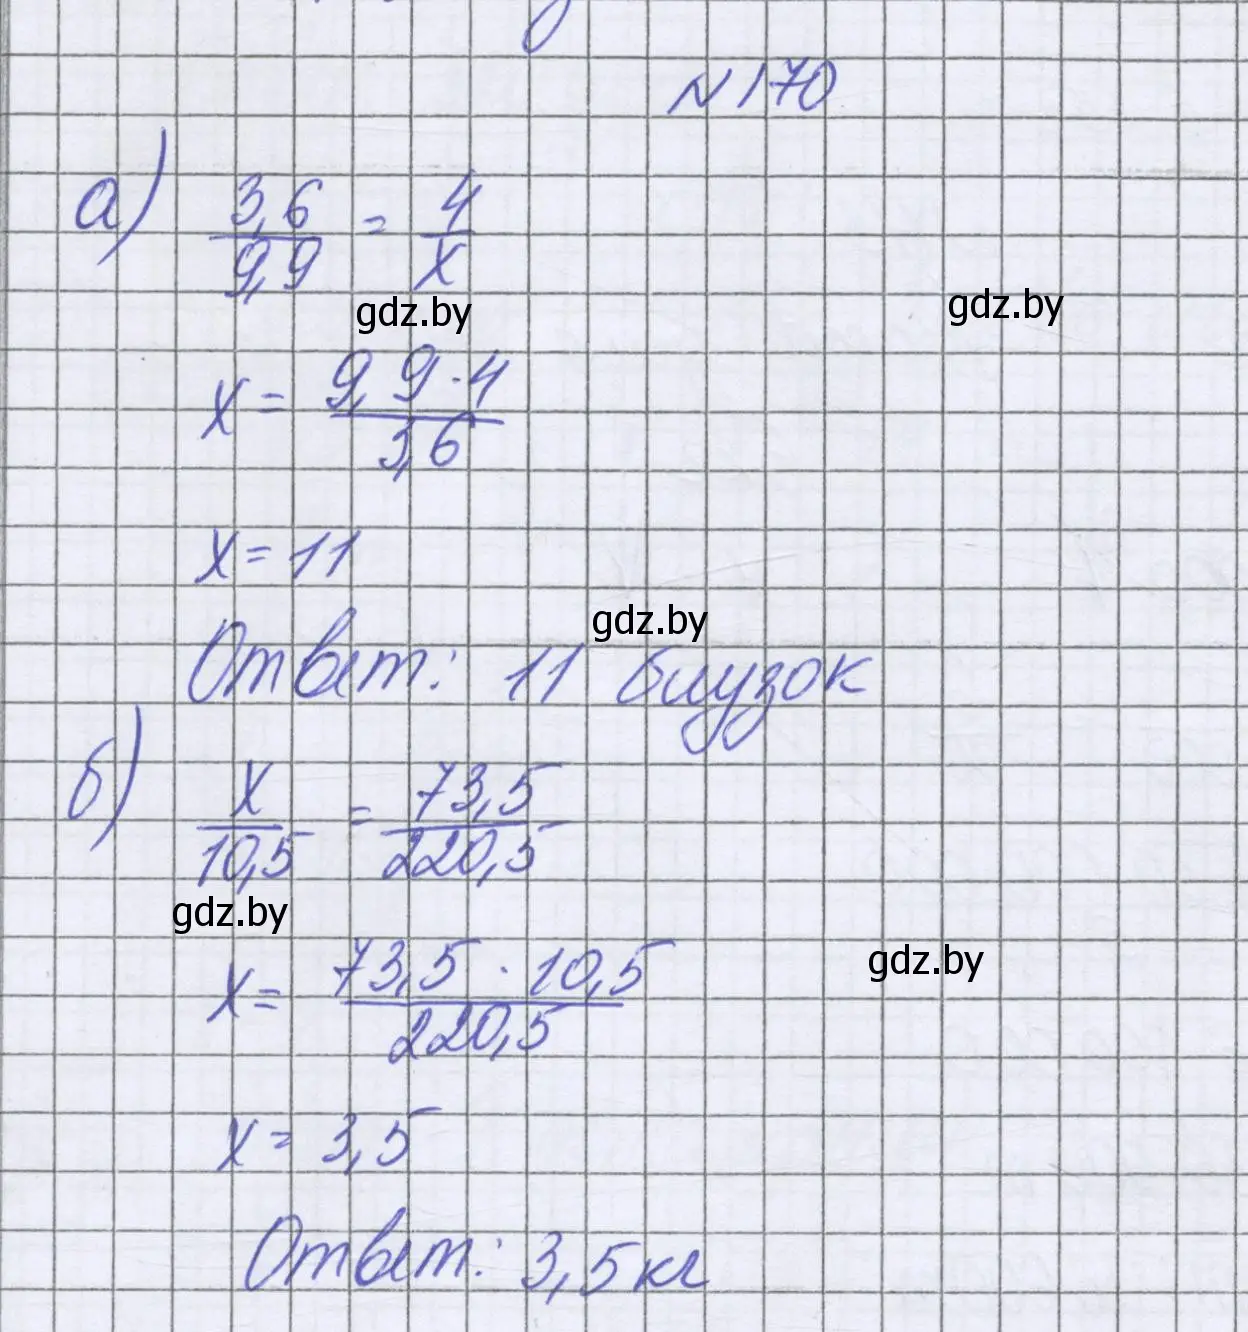 N 170
а) 3,6/9,9 = 4/x
gdz.by
gdz.by
x = 9,9·4/3,6
x = 11
gdz.by
Ответ: 11 блузок
б) x/10,5 = 73,5/220,5
gdz.by
gdz.by
x = 73,5 · 10,5/220,5
x = 3,5
Ответ: 3,5 кг